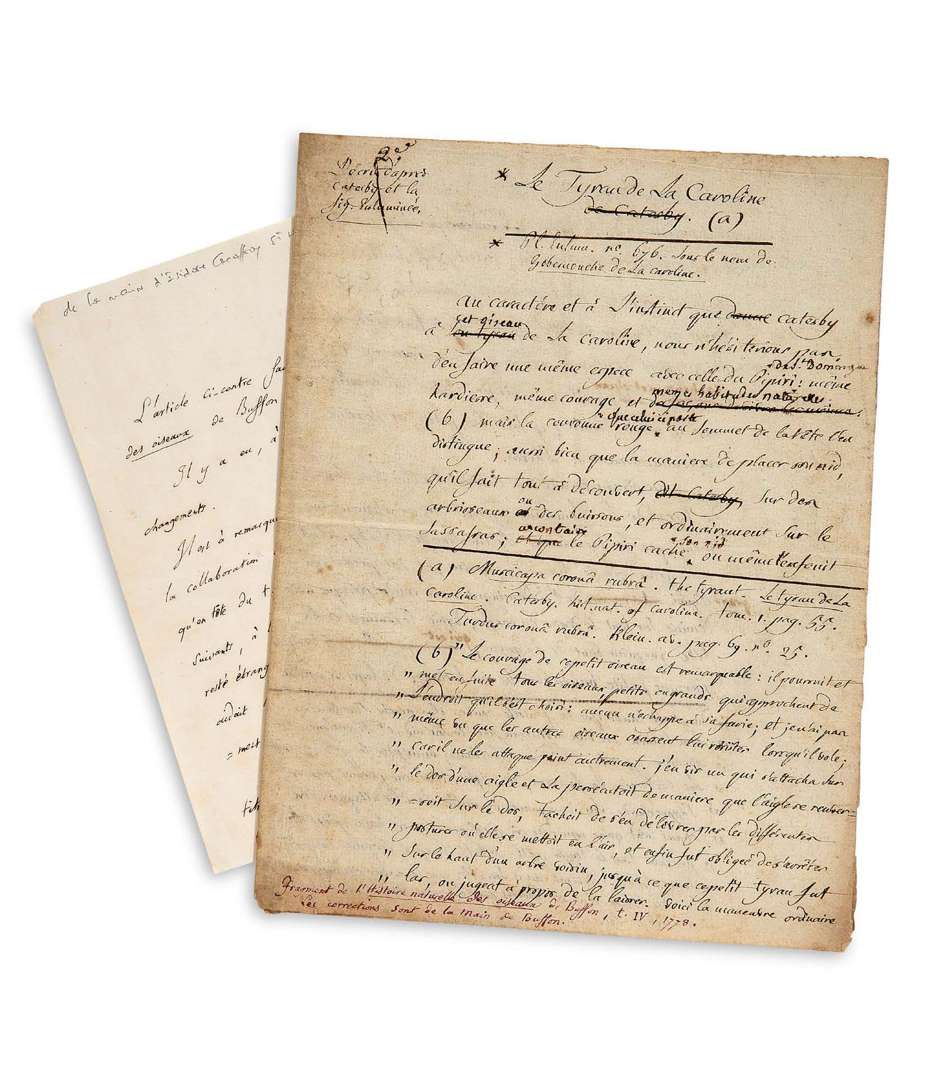 de la main d'Isidore Geoffroy St
L'article ci-contre fa
des oiseaux de Buffon
Il y a eu, à
changements.
Il est à remarqu
la collaboration
qu'en tête du t
suivants, à
resté étrang
aurait
= ment
2e.
Décrit d'apres
Catesby et la
fig. Enluminée.
* Le Tyran de La Caroline
de Catesby. (a)
* Pl. Enlum. no. 676. Sous le nom de
Gobemouche de La Caroline.
au caractére et à L'instinct que donne Catesby
cet oiseau
à de La Caroline, nous n'hésiterions pas
de St Domingue
d'en faire une même espece avec celle du Pipiri: même
memes habitudes naturelles
hardiesse, même courage et
que celui-ci porte
(b) mais la couronne rouge au Sommet de la tête l'en
distingue; aussi bien que la maniere de placer son nid,
qu'il fait tout à découvert, dit Catesby, sur des
ou
arbrisseaux des buissons, et ordinairement sur le
au contraire son nid
Sassafras; et que le Pipiri cache ou même l'enfouit
(a) Muscicapa coronâ rubrâ. the tyrant. Le tyran de La
Caroline. Catesby. hist. nat. of Carolina. tom. 1. pag. 55.
Turdus coronâ rubrâ. Klein. av. pag. 69. no. 25.
(b) " Le courage de ce petit oiseau est remarquable: il poursuit et
" met en fuite tous les oiseaux petits ou grands qui approchent de
" L'endroit qu'il s'est choisi: aucun n'echappe à sa furie; et je n'ai pas
" même vu que les autres oiseaux osassent lui résister lorsqu'il vole;
" car il ne les attaque point autrement. j'en vis un qui s'attacha sur
" le dos d'une aigle et La persécutoit de maniere que l'aigle se renver-
" =soit sur le dos, tachoit de s'en délivrer par les différentes
" postures où elle se mettoit en l'air, et enfin fut obligée de s'arrêter
" sur le haut d'un arbre voisin, jusqu'à ce que ce petit tyran fut
" las, ou jugeat à propos de la laisser. Voici la manœuvre ordinaire
Fragment de l'Histoire naturelle des oiseaux de Buffon, t. IV, 1778.
Les corrections sont de la main de Buffon.